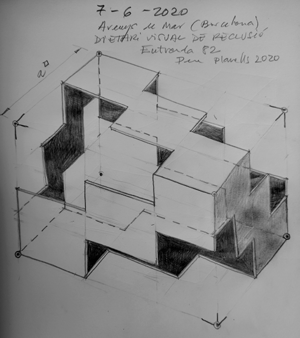 7-6-2020
Arenys de Mar (Barcelona)
DIETARI VISUAL DE RECLUSIÓ
Entrada 82
Pere Planells 2020
a"